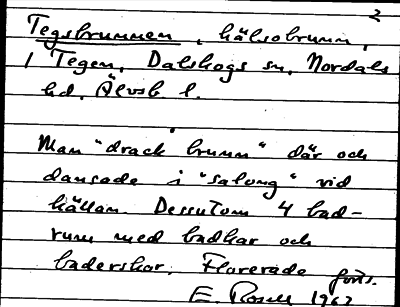 2
Tegsbrunnen, hälsobrunn,
i Tegen, Dalskogs sn, Nordals
hd, Älvsb l.
Man "drack brunn" där och
dansade i "salong" vid
källan. Dessutom 4 bad-
rum med badkar och
baderskor. Florerade forts.
E. Rosell 1962